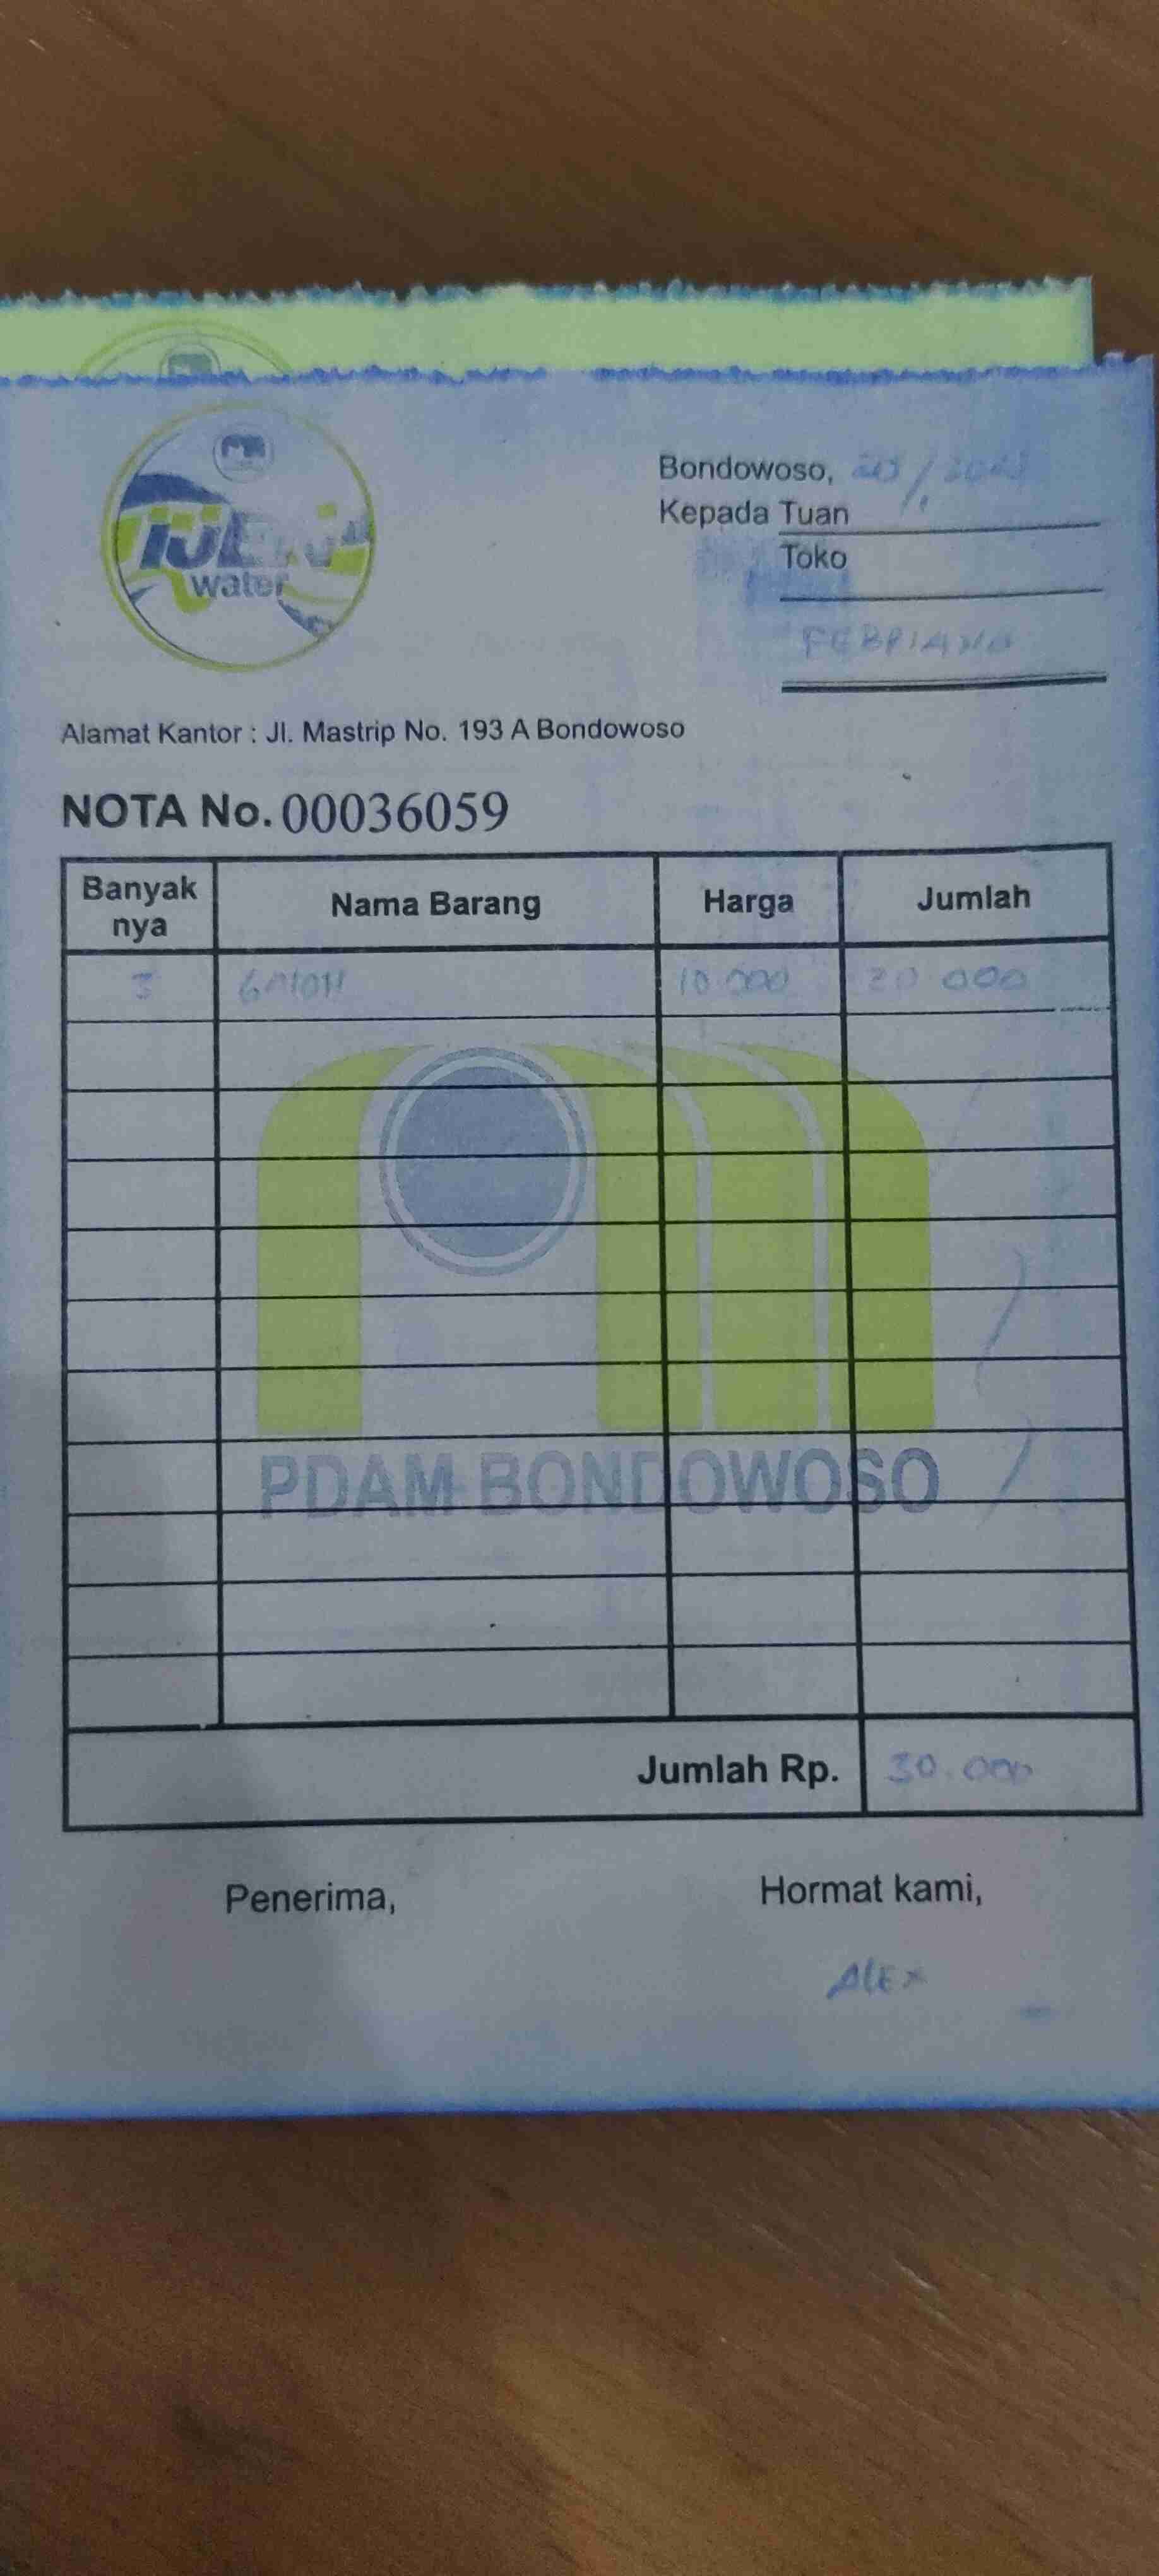 water
Bondowoso,
Kepada Tuan
Toko
FEBRIANO
Alamat Kantor : Jl. Mastrip No. 193 A Bondowoso
NOTA No. 00036059
Banyak nya Nama Barang Harga Jumlah
3 GAlON 10.000 30 000
PDAM BONDOWOSO
Jumlah Rp. 30.000
Penerima, Hormat kami,
AlEX